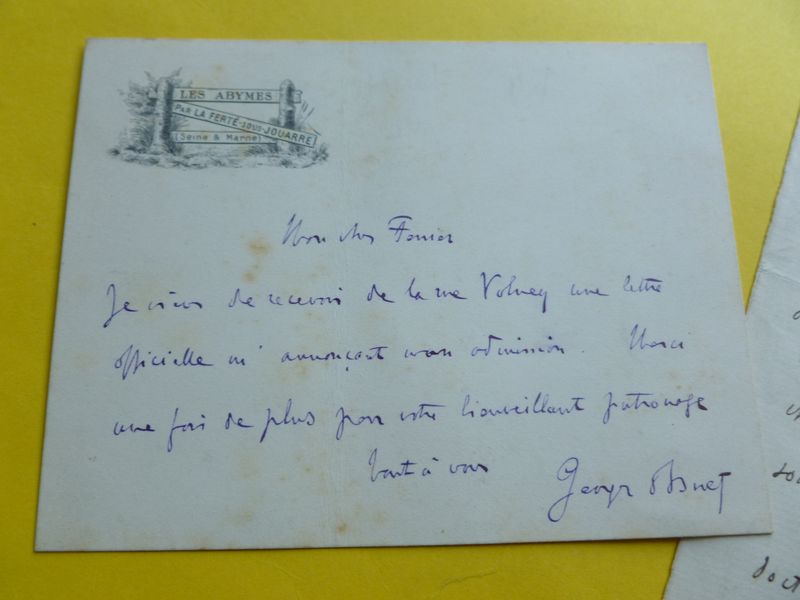 LES ABYMES
PAR LA FERTÉ-SOUS-JOUARRE
(Seine & Marne)
Mon cher
Je viens de recevoir de la rue Volney une lettre
officielle m'annonçant mon admission. Merci
une fois de plus pour votre bienveillant patronage
tout à vous
Georges Ohnet